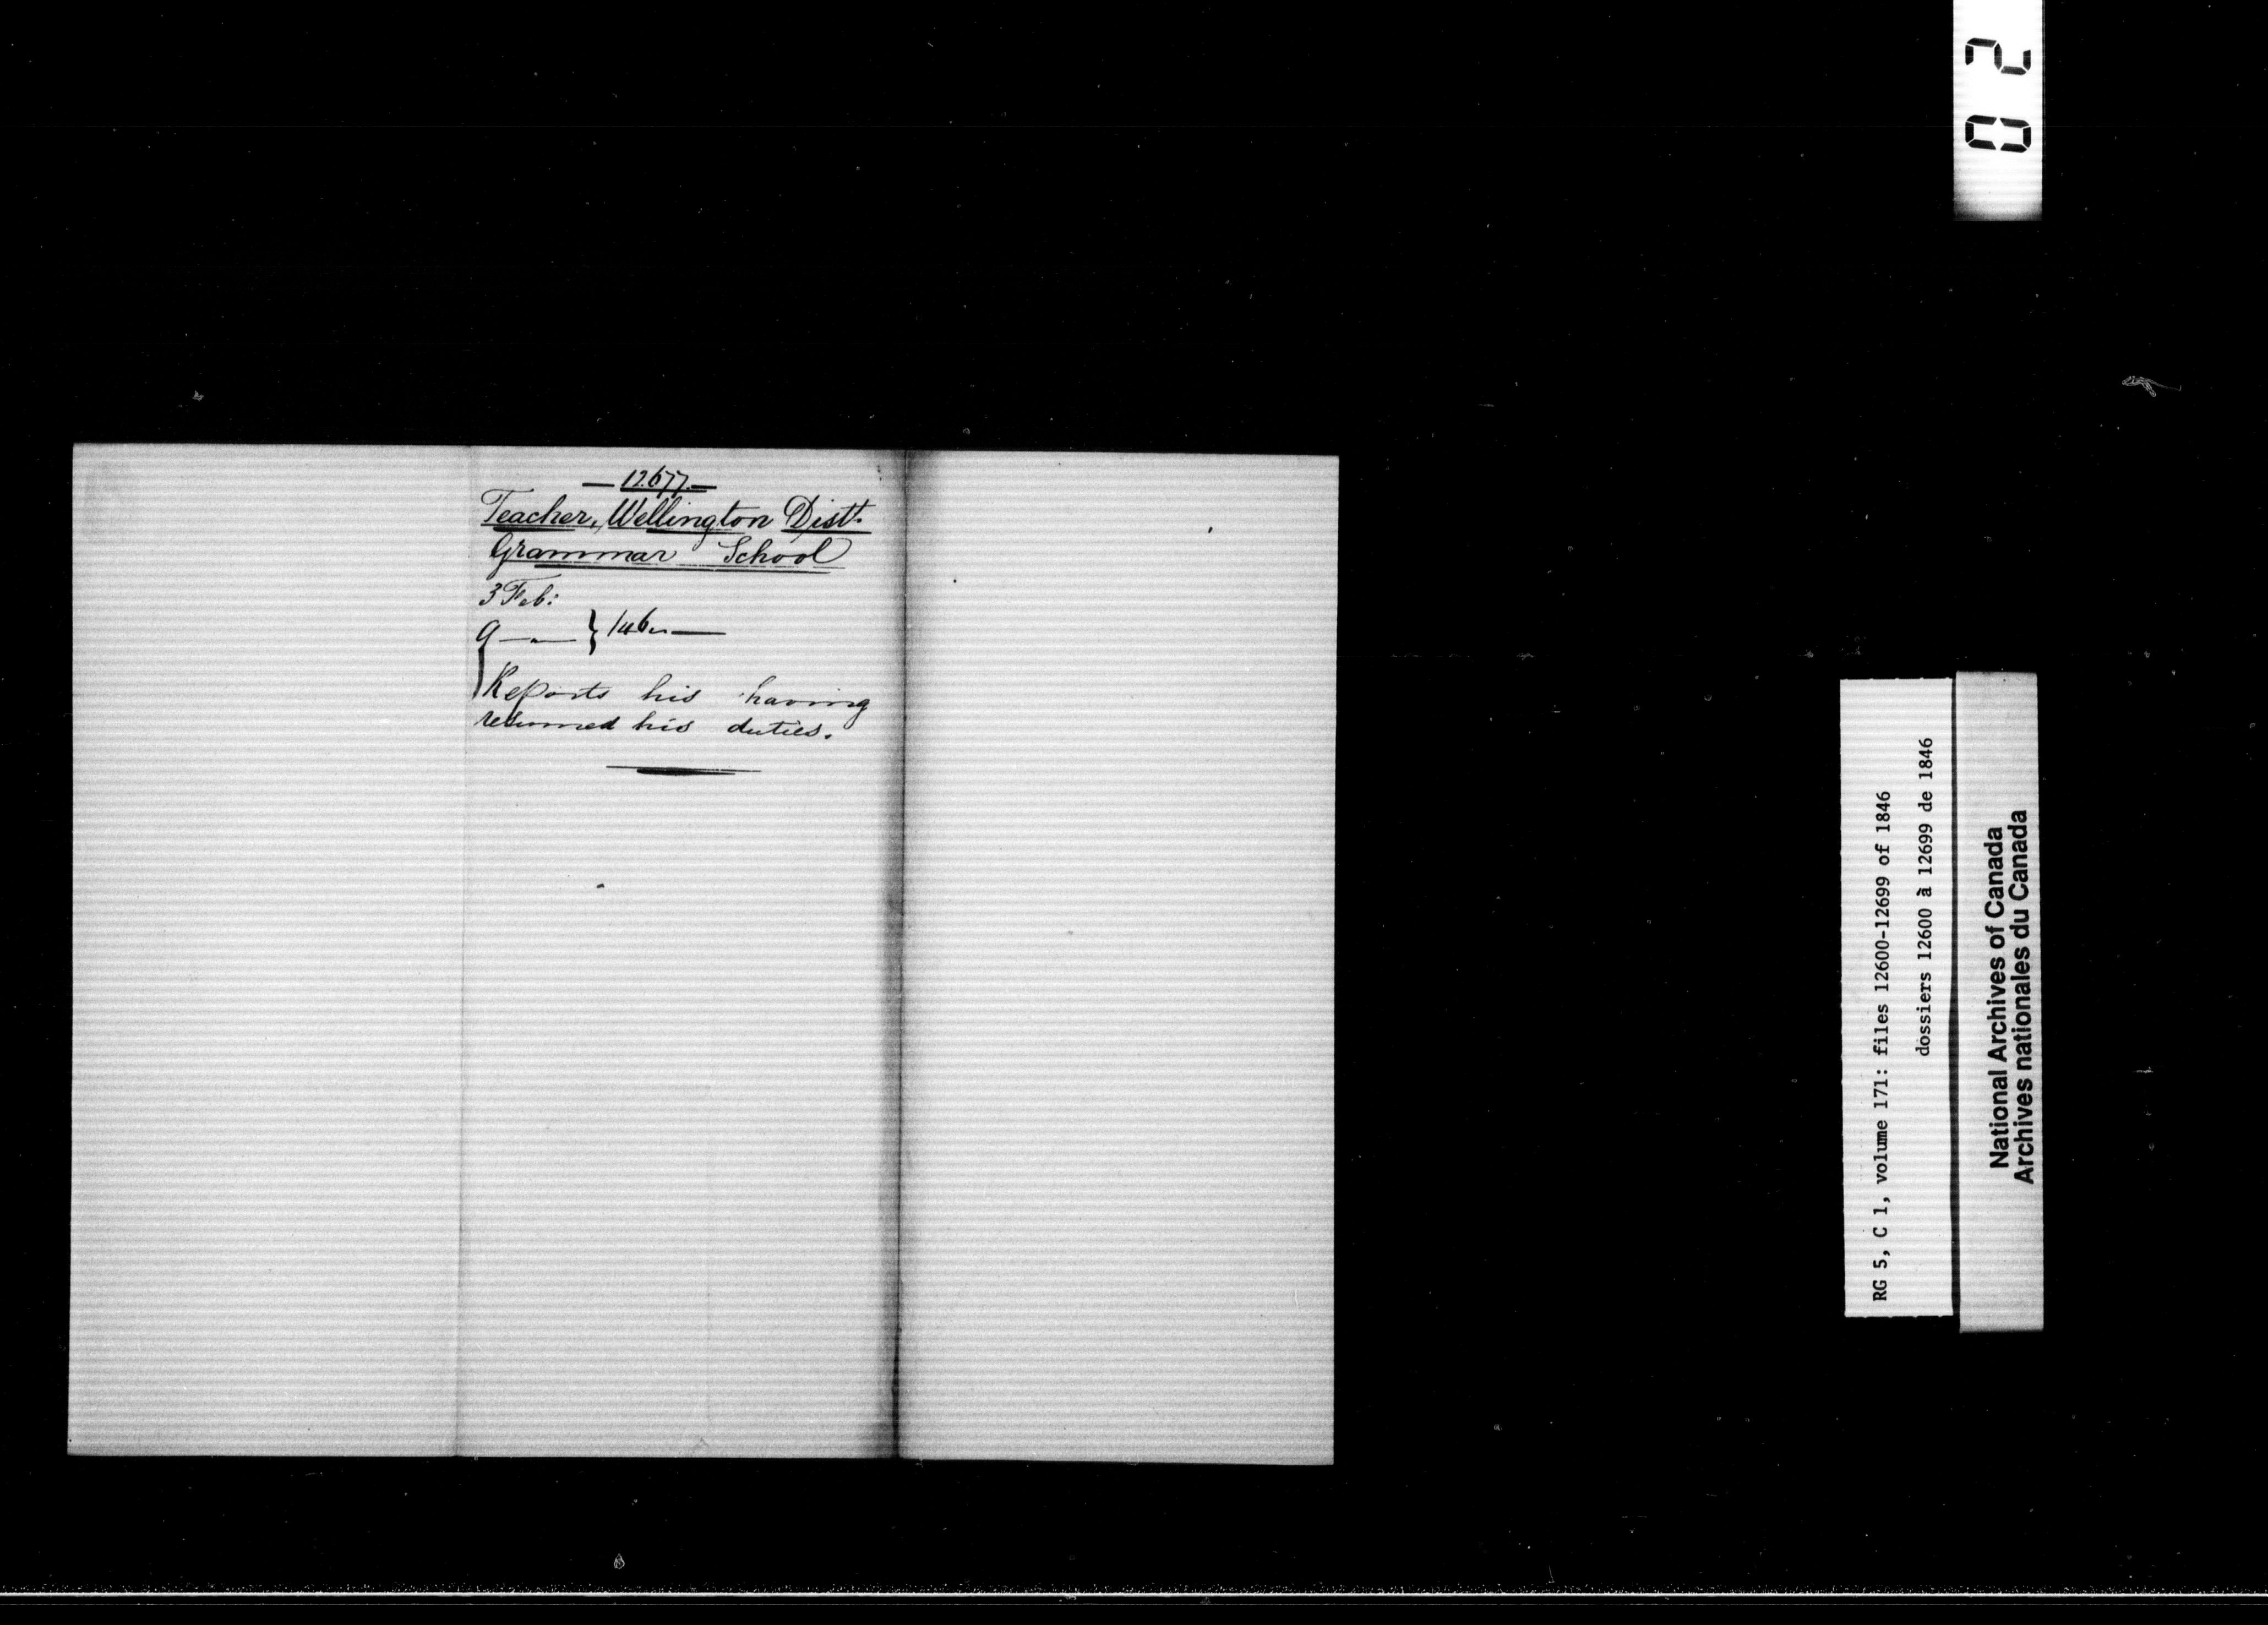 — 12677. —
Teacher, Wellington Distt.
Grammar School
3 Feb:
9 — " — } 1846 —
Reports his having
resumed his duties.
02
RG 5, C 1, volume 171: files 12600-12699 of 1846
dossiers 12600 à 12699 de 1846
National Archives of Canada
Archives nationales du Canada